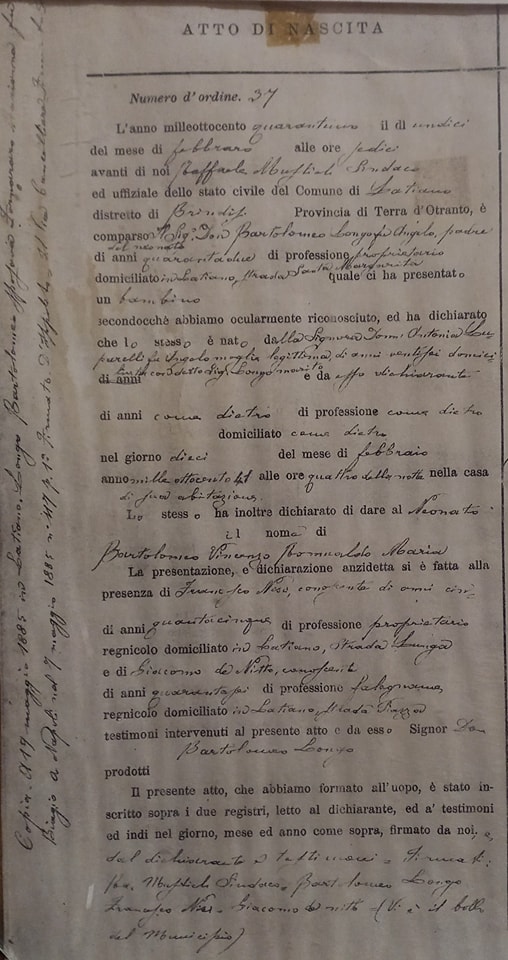 ATTO DI NASCITA
Numero d'ordine. 37
L'anno milleottocento quarantuno il dì undici
del mese di febbraro alle ore sedici
avanti di noi Raffaele Sindaco
ed uffiziale dello stato civile del Comune di Latiano
distretto di Brindisi Provincia di Terra d'Otranto, è
comparso Il Sig.r Don Bartolomeo Longo fu Angelo, padre
del neonato
di anni quarantadue di professione proprietario
domiciliato in Latiano, Strada Santa Margarita quale ci ha presentato
un bambino
secondocchè abbiamo ocularmente riconosciuto, ed ha dichiarato
che lo stesso è nato dalla Signora Donn' Antonia Lu-
parelli fu Angelo moglie legittima, di anni ventisei domici
di anni con detto Sig.r Longo marito e da esso dichiarante
di anni come dietro di professione come dietro
domiciliato come dietro
nel giorno dieci del mese di febbraio
anno mille ottocento 41 alle ore quattro della notte nella casa
di sua abitazione.
Lo stesso ha inoltre dichiarato di dare al Neonato
il nome di
Bartolomeo Vincenzo Romualdo Maria
La presentazione, e dichiarazione anzidetta si è fatta alla
presenza di Francesco di anni cin-
di anni quantacinque di professione proprietario
regnicolo domiciliato in Latiano, Strada Lunga
e di Giacomo de Nitto, conoscente
di anni quarantasei di professione falegname,
regnicolo domiciliato in Latiano, Strada Piazza
testimoni intervenuti al presente atto e da esso Signor Don
Bartolomeo Longo
prodotti
Il presente atto, che abbiamo formato all'uopo, è stato in-
scritto sopra i due registri, letto al dichiarante, ed a' testimoni
ed indi nel giorno, mese ed anno come sopra, firmato da noi, e
dal dichiarante e testimoni. Firmati.
Sindaco. Bartolomeo Longo
Francesco Giacomo de Nitto (Vi è il bollo
del Municipio)
Copia. A 19 maggio 1885 in Latiano, Longo Bartolomeo
a Napoli nel 7 maggio 1885 n. 417 p. 1º